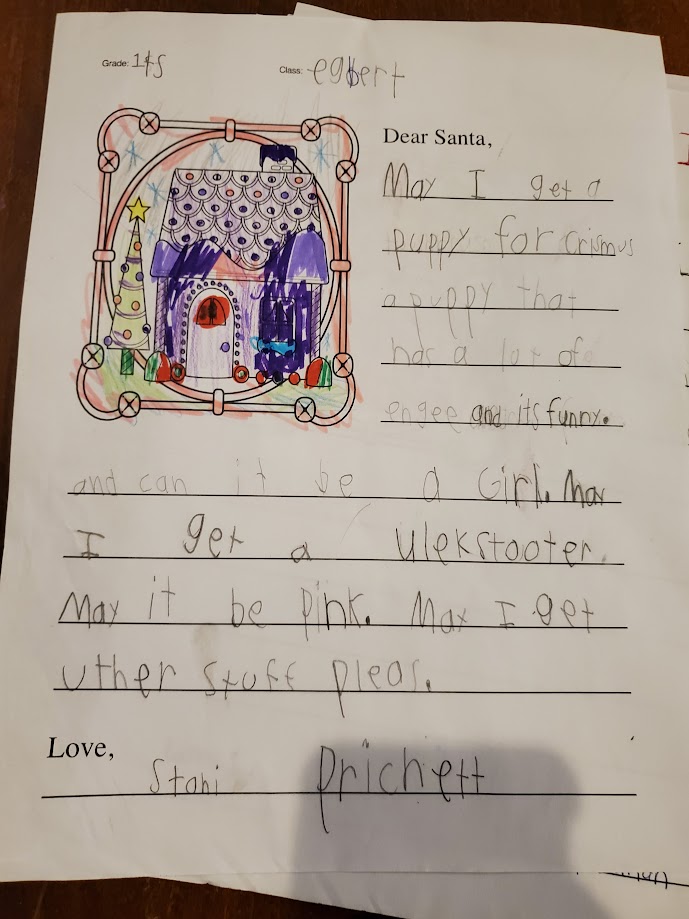 Grade: 1ts
Class: egbert
Dear Santa,
May I get a
puppy for crismus
a puppy that
has a lot of
engee and its funny.
and can it be a Girl. May
I get a ulekstooter.
May it be pink. May I get
uther stuff pleas.
Love,
Stahi Prichett